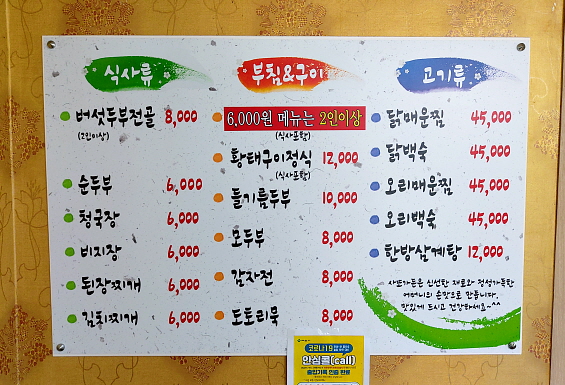 식사류
버섯두부전골 8,000
(2인이상)
순두부 6,000
청국장 6,000
비지장 6,000
된장찌개 6,000
김치찌개 6,000
부침&구이
6,000원 메뉴는 2인이상
(식사포함)
황태구이정식 12,000
(식사포함)
들기름두부 10,000
모두부 8,000
감자전 8,000
도토리묵 8,000
고기류
닭매운찜 45,000
닭백숙 45,000
오리매운찜 45,000
오리백숙 45,000
한방삼계탕 12,000
신선한 재료와 정성가득한
어머니의 손맛으로 만듭니다.
맛있게 드시고 건강하세요~^^
코로나19
안심콜(call)
출입기록 인증 완료